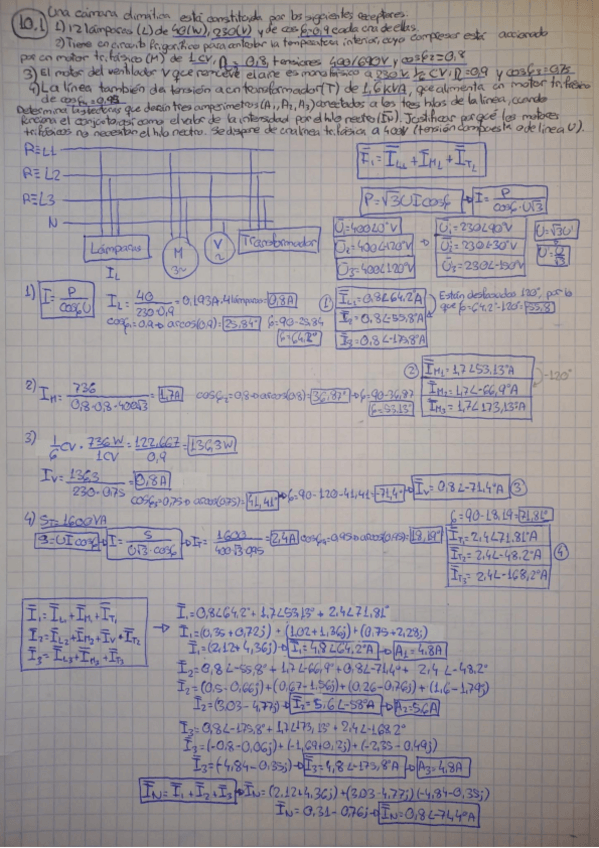 10.1 Una cámara climática está constituida por los siguientes receptores:
1) 12 lámparas (L) de 40(W), 230(V) y de cosφ=0,9 cada una de ellas.
2) Tiene un circuito frigorífico para controlar la temperatura interior, cuyo compresor está accionado
por un motor trifásico (M) de 1CV, η=0,8, tensiones 400/690V y cosφ2=0,8
3) El motor del ventilador V que remueve el aire es monofásico a 230V 1/6 CV, η=0,9 y cosφ3=0,75
4) La línea también da tensión a un transformador (T) de 1,6kVA, que alimenta un motor trifásico
de cosφ4=0,95
Determina las lecturas que darían tres amperímetros (A1, A2, A3) conectados a los tres hilos de la línea, cuando
funciona el conjunto, así como el valor de la intensidad por el hilo neutro (IN). Justificar por qué los motores
trifásicos no necesitan el hilo neutro. Se dispone de una línea trifásica a 400V (tensión compuesta o de línea U).
R≡L1
R≡L2
R≡L3
N
Lámparas
M
3~
V
~
Transformador
IL
Ī1=ĪL1+ĪM1+ĪT1
P=√3UIcosφ → I=P/(cosφ·U√3)
Ū1=400∠0°V
Ū2=400∠-120°V
Ū3=400∠120°V
Ū1=230∠90°V
Ū2=230∠-30°V
Ū3=230∠-150°V
U=√3U'
U'=U/√3
1) I=P/(cosφU) IL=40/(230·0,9)=0,193A·4 lámparas=0,8A
cosφ1=0,9→arcos(0,9)=25,84° φ=90-25,84
φ=64,2°
① ĪL1=0,8∠64,2°A
Ī2=0,8∠-55,8°A
Ī3=0,8∠-175,8°A
Están desfasados 120°, por lo
que φ=64,2°-120°=-55,8
2) IM=736/(0,8·0,8·400√3)=1,7A cosφ2=0,8→arcos(0,8)=36,87°→φ=90-36,87
φ=53,13°
② ĪM1=1,7∠53,13°A
ĪM2=1,7∠-66,9°A
ĪM3=1,7∠173,13°A
-120°
3) 1/6 CV·736W/1CV=122,667/0,9=136,3W
IV=136,3/(230·0,75)=0,8A
cosφ3=0,75→arcos(0,75)=41,41°→φ=90-120-41,41=-71,4°→ĪV=0,8∠-71,4°A ③
4) S=1600VA
S=UIcosφ→I=S/(U√3·cosφ)→IT=1600/(400√3·0,95)=2,4A cosφ4=0,95→arcos(0,95)=18,19°
φ=90-18,19=71,81°
ĪT1=2,4∠71,81°A
ĪT2=2,4∠-48,2°A
ĪT3=2,4∠-168,2°A
④
Ī1=ĪL1+ĪM1+ĪT1
Ī2=ĪL2+ĪM2+ĪV+ĪT2
Ī3=ĪL3+ĪM3+ĪT3
Ī1=0,8∠64,2°+1,7∠53,13°+2,4∠71,81°
Ī1=(0,35+0,72j)+(1,02+1,36j)+(0,75+2,28j)
Ī1=(2,12+4,36j)→Ī1=4,8∠64,2°A→A1=4,8A
Ī2=0,8∠-55,8°+1,7∠-66,9°+0,8∠-71,4°+2,4∠-48,2°
Ī2=(0,5-0,66j)+(0,67-1,56j)+(0,26-0,76j)+(1,6-1,79j)
Ī2=(3,03-4,77j)→Ī2=5,6∠-58°A→A2=5,6A
Ī3=0,8∠-175,8°+1,7∠173,13°+2,4∠-168,2°
Ī3=(-0,8-0,06j)+(-1,69+0,2j)+(-2,35-0,49j)
Ī3=(-4,84-0,35j)→Ī3=4,8∠-175,8°A→A3=4,8A
ĪN=Ī1+Ī2+Ī3→ĪN=(2,12+4,36j)+(3,03-4,77j)(-4,84-0,35j)
ĪN=0,31-0,76j→ĪN=0,8∠-74,4°A